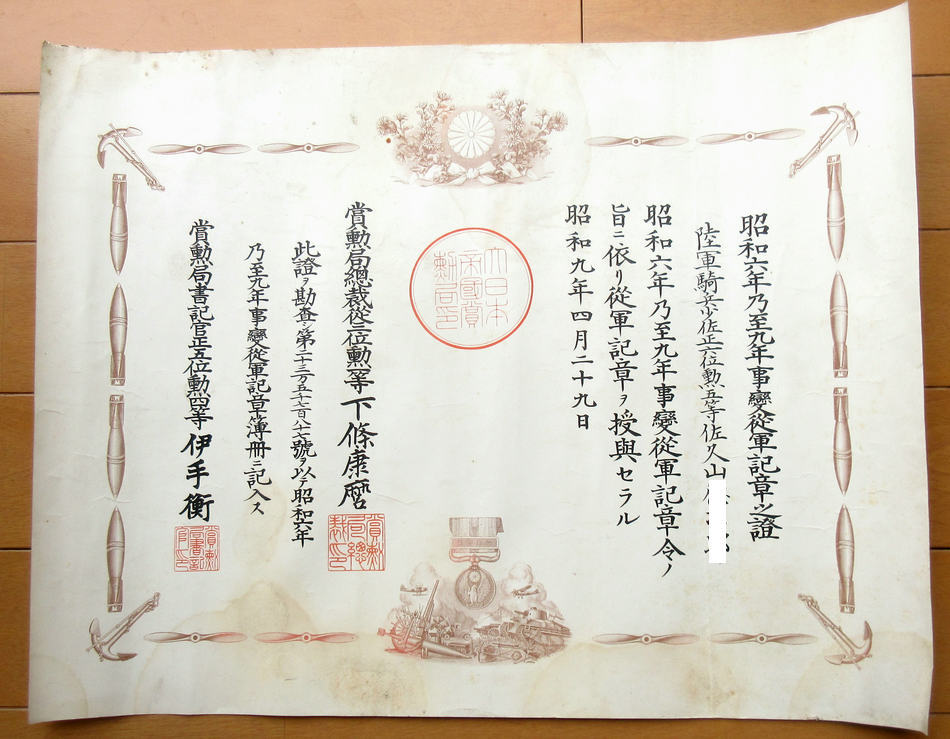 昭和六年乃至九年事變從軍記章之證
陸軍騎兵少佐正六位勲五等佐久山
昭和六年乃至九年事變從軍記章令ノ
旨ニ依リ從軍記章ヲ授與セラル
昭和九年四月二十九日
大日本
帝國賞
勲局印
賞勲局總裁從三位勲二等下條康麿
賞勲
局總
裁印
此證ヲ勘査シ第二十三万五千七百八十七號ヲ以テ昭和六年
乃至九年事變從軍記章簿册ニ記入ス
賞勲局書記官正五位勲四等伊手衡
賞勲
局書記
官印